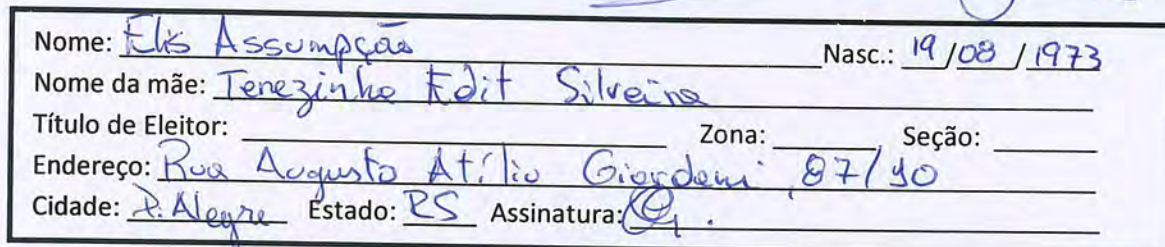 Nome: Elis Assumpção Nasc.: 19/08/1973
Nome da mãe: Terezinha Edit Silveira
Título de Eleitor: Zona: Seção:
Endereço: Rua Augusto Atílio Giordani, 87/
Cidade: P. Alegre Estado: RS Assinatura: